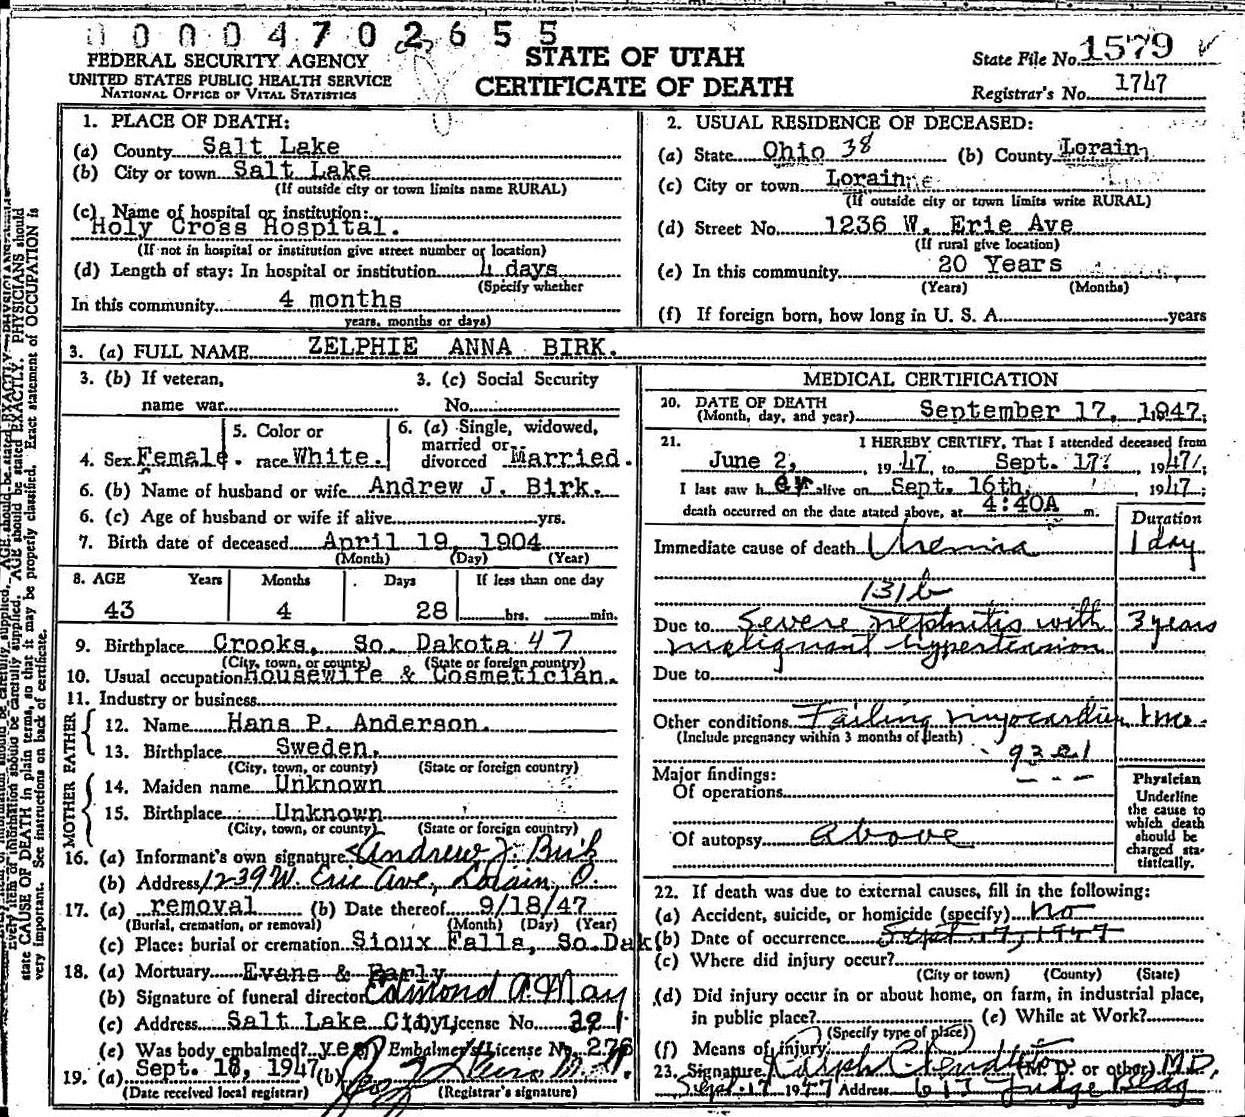 0000470 2655
FEDERAL SECURITY AGENCY
UNITED STATES PUBLIC HEALTH SERVICE
NATIONAL OFFICE OF VITAL STATISTICS
STATE OF UTAH
CERTIFICATE OF DEATH
State File No. 1579
Registrar's No. 1747
1. PLACE OF DEATH:
(a) County Salt Lake
(b) City or town Salt Lake
(If outside city or town limits name RURAL)
(c) Name of hospital or institution:
Holy Cross Hospital.
(If not in hospital or institution give street number or location)
(d) Length of stay: In hospital or institution 4 days
(Specify whether
In this community 4 months
years, months or days)
2. USUAL RESIDENCE OF DECEASED:
(a) State Ohio 38 (b) County Lorain
(c) City or town Lorain
(If outside city or town limits write RURAL)
(d) Street No. 1236 W. Erie Ave
(If rural give location)
(e) In this community 20 Years
(Years) (Months)
(f) If foreign born, how long in U. S. A. years
3. (a) FULL NAME ZELPHIE ANNA BIRK.
3. (b) If veteran,
name war
3. (c) Social Security
No.
4. Sex Female.
5. Color or
race White.
6. (a) Single, widowed,
married or
divorced Married.
6. (b) Name of husband or wife Andrew J. Birk.
6. (c) Age of husband or wife if alive yrs.
7. Birth date of deceased April 19, 1904
(Month) (Day) (Year)
8. AGE Years Months Days If less than one day
43 4 28 hrs. min.
9. Birthplace Crooks, So. Dakota 47
(City, town, or county) (State or foreign country)
10. Usual occupation Housewife & Cosmetician.
11. Industry or business
FATHER
12. Name Hans P. Anderson.
13. Birthplace Sweden.
(City, town, or county) (State or foreign country)
MOTHER
14. Maiden name Unknown
15. Birthplace Unknown
(City, town, or county) (State or foreign country)
16. (a) Informant's own signature Andrew J. Birk
(b) Address 1239 W. Erie Ave, Lorain, O.
17. (a) removal (b) Date thereof 9/18/47
(Burial, cremation, or removal) (Month) (Day) (Year)
(c) Place: burial or cremation Sioux Falls, So.Dak.
18. (a) Mortuary Evans & Early
(b) Signature of funeral director Edmond A. May
(c) Address Salt Lake City, License No. 321
(e) Was body embalmed? yes Embalmer's License No. 276
19. (a) Sept. 18, 1947 (b)
(Date received local registrar) (Registrar's signature)
MEDICAL CERTIFICATION
20. DATE OF DEATH
(Month, day, and year) September 17, 1947.
21. I HEREBY CERTIFY, That I attended deceased from
June 2, 1947, to Sept. 17, 1947,
I last saw her alive on Sept. 16th, 1947;
death occurred on the date stated above, at 4:40A m.
Duration
Immediate cause of death Uremia 1 day
131b
Due to Severe nephritis with 3 years
malignant hypertension
Due to
Other conditions Failing myocardium 1 mo.
(Include pregnancy within 3 months of death)
Major findings:
Of operations
Of autopsy above
Physician
Underline
the cause to
which death
should be
charged sta-
tistically.
22. If death was due to external causes, fill in the following:
(a) Accident, suicide, or homicide (specify) no
(b) Date of occurrence Sept. 17, 1947
(c) Where did injury occur?
(City or town) (County) (State)
(d) Did injury occur in or about home, on farm, in industrial place,
in public place? (e) While at Work?
(Specify type of place)
(f) Means of injury
23. Signature Ralph C. Pendleton (M. D. or other) M.D.
Sept. 17 1947 Address 617 Judge Bldg
state CAUSE OF DEATH in plain terms, so that it may be properly classified. Exact statement of OCCUPATION is
very important. See instructions on back of certificate.